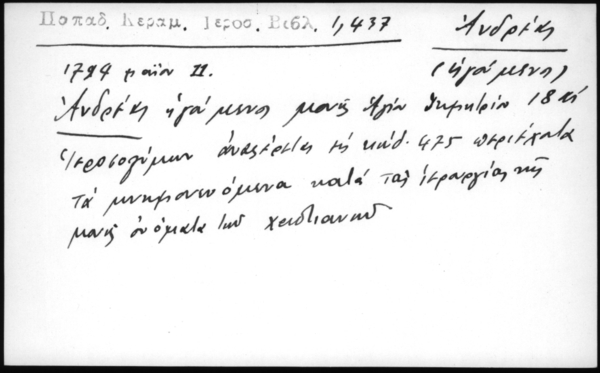 Παπαδ. Κεραμ. Ιεροσ. Βιβλ. 1,437
Ἀνδρέας
(ἡγούμενος)
1724 μαΐου 11.
Ἀνδρέας ἡγούμενος μονῆς Ἁγίου Δημητρίου
Ἱεροσολύμων ἀναφέρεται κώδ. 475 περιέχοντα
τὰ μνημονευόμενα κατὰ τὰς ἱερουργίας τῆς
μονῆς ὀνόματα τῶν χριστιανῶν